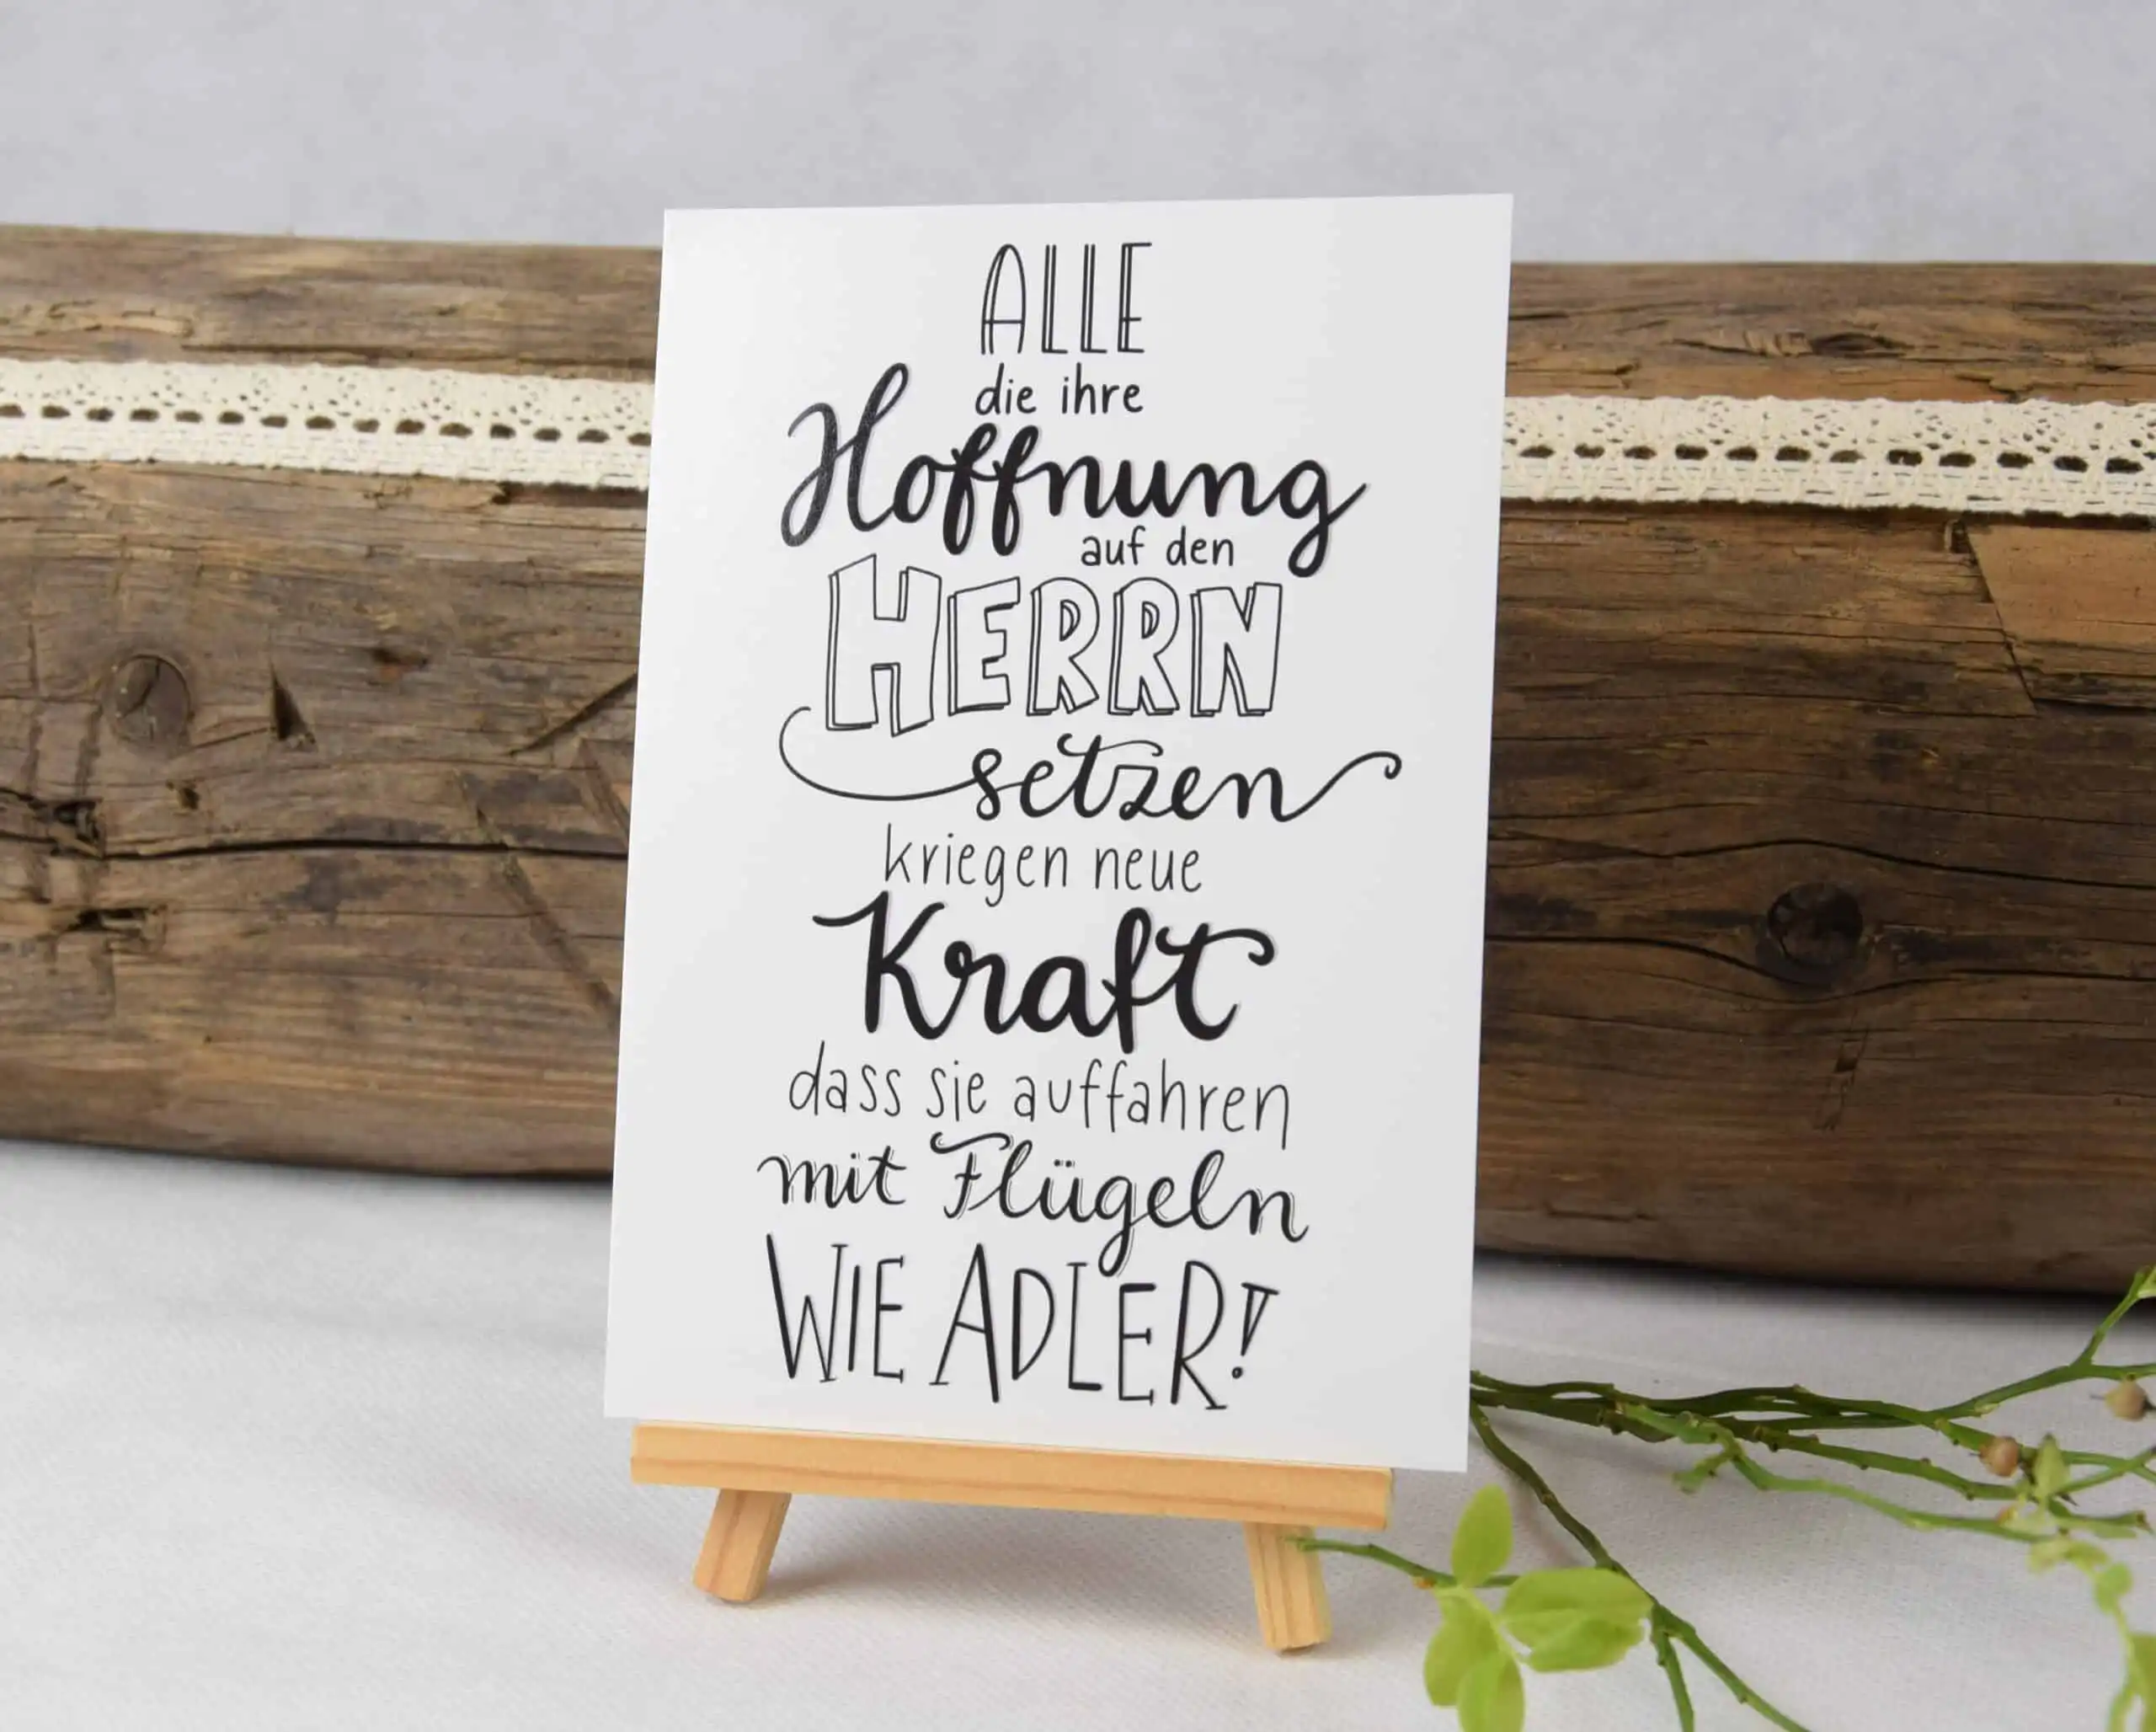 ALLE
die ihre
Hoffnung
auf den
HERRN
setzen
kriegen neue
Kraft
dass sie auffahren
mit Flügeln
WIE ADLER!